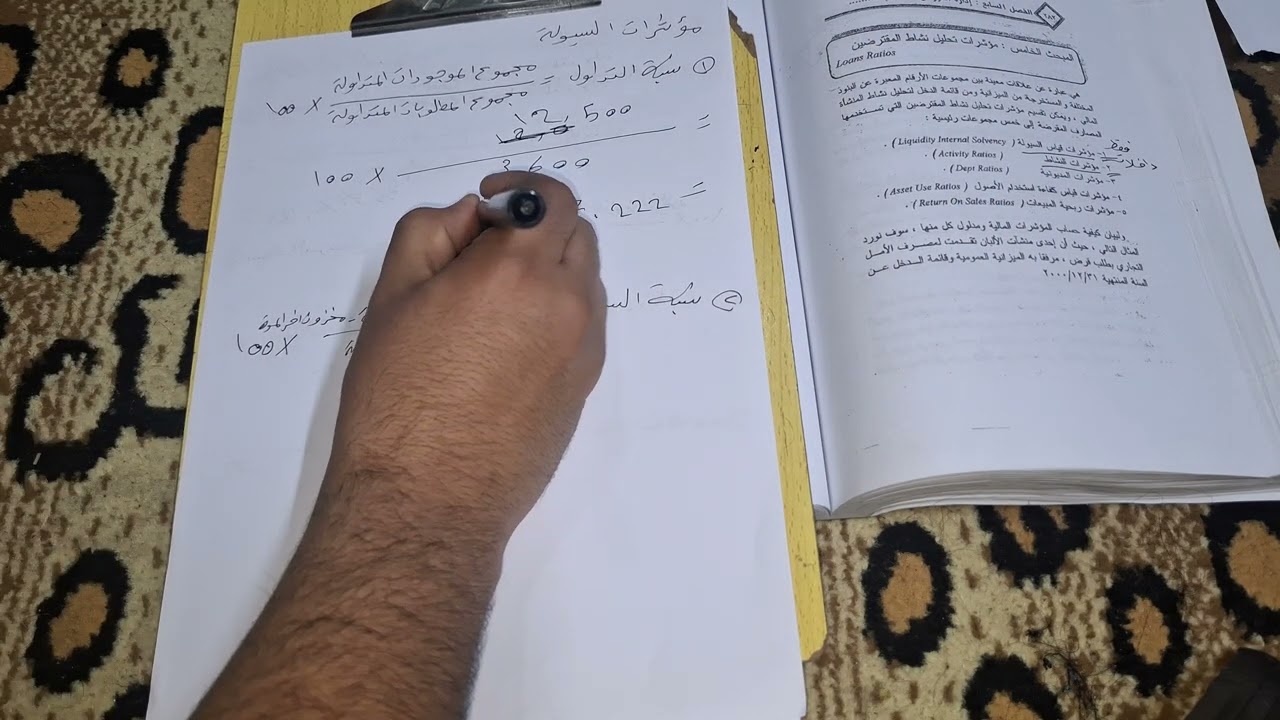 مؤشرات السيولة
① نسبة التداول = مجموع الموجودات المتداولة
مجموع المطلوبات المتداولة × 100
= 12,500
3600 × 100
= 3.222
② نسبة
مخزون آخر المدة
× 100
الفصل السابع : إدارة
المبحث الخامس : مؤشرات تحليل نشاط المقترضين
Loans Ratios
هي عبارة عن علاقات معينة بين مجموعات الأرقام المعبرة عن البنود
المختلفة والمستخرجة من الميزانية ومن قائمة الدخل لتحليل نشاط المنشأة
المالي ، ويمكن تقسيم مؤشرات تحليل نشاط المقترضين التي تستخدمها
المصارف المقرضة إلى خمس مجموعات رئيسية :
١- مؤشرات قياس السيولة ( Liquidity Internal Solvency ) .
٢- مؤشرات النشاط ( Activity Ratios ) .
٣- مؤشرات المديونية ( Dept Ratios ) .
فقط
داخلات
٤- مؤشرات قياس كفاءة استخدام الأصول ( Asset Use Ratios ) .
٥- مؤشرات ربحية المبيعات ( Return On Sales Ratios ) .
ولبيان كيفية حساب المؤشرات المالية ومدلول كل منها ، سوف نورد
المثال التالي ، حيث أن إحدى منشآت الألبان تقدمت لمصرف الأمل
التجاري بطلب قرض ، مرفقا به الميزانية العمومية وقائمة الدخل عن
السنة المنتهية ٢٠٠٠/١٢/٣١